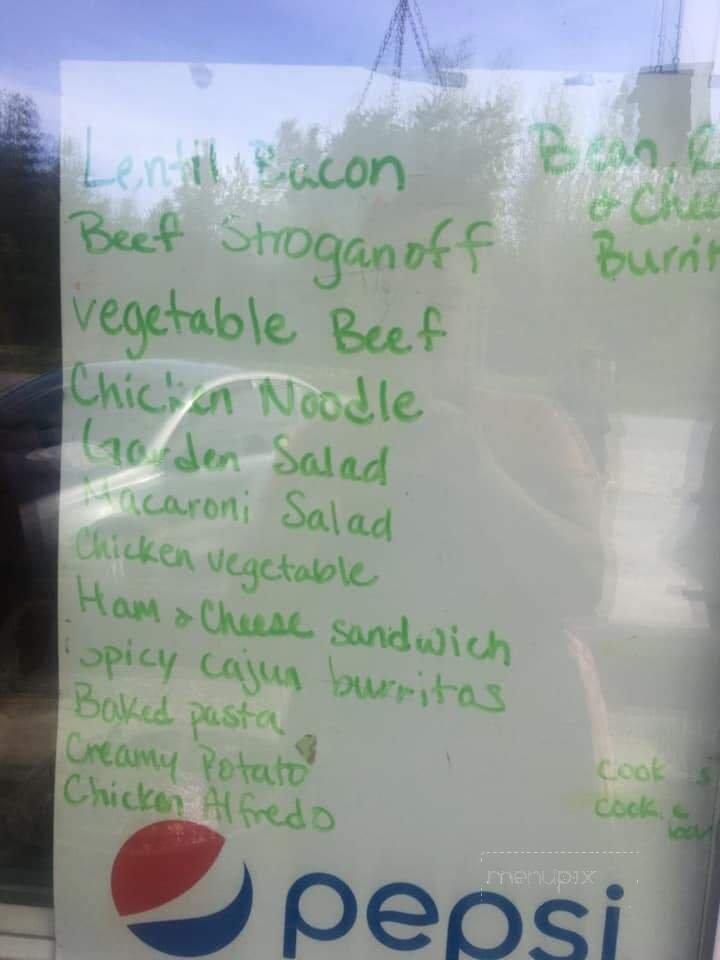 Lentil Bacon
Beef Stroganoff
vegetable Beef
Chicken Noodle
Garden Salad
Macaroni Salad
Chicken vegetable
Ham & Cheese sandwich
spicy cajun burritos
Baked pasta
Creamy Potato
Chicken Alfredo
Bean,
&
pepsi
menupix